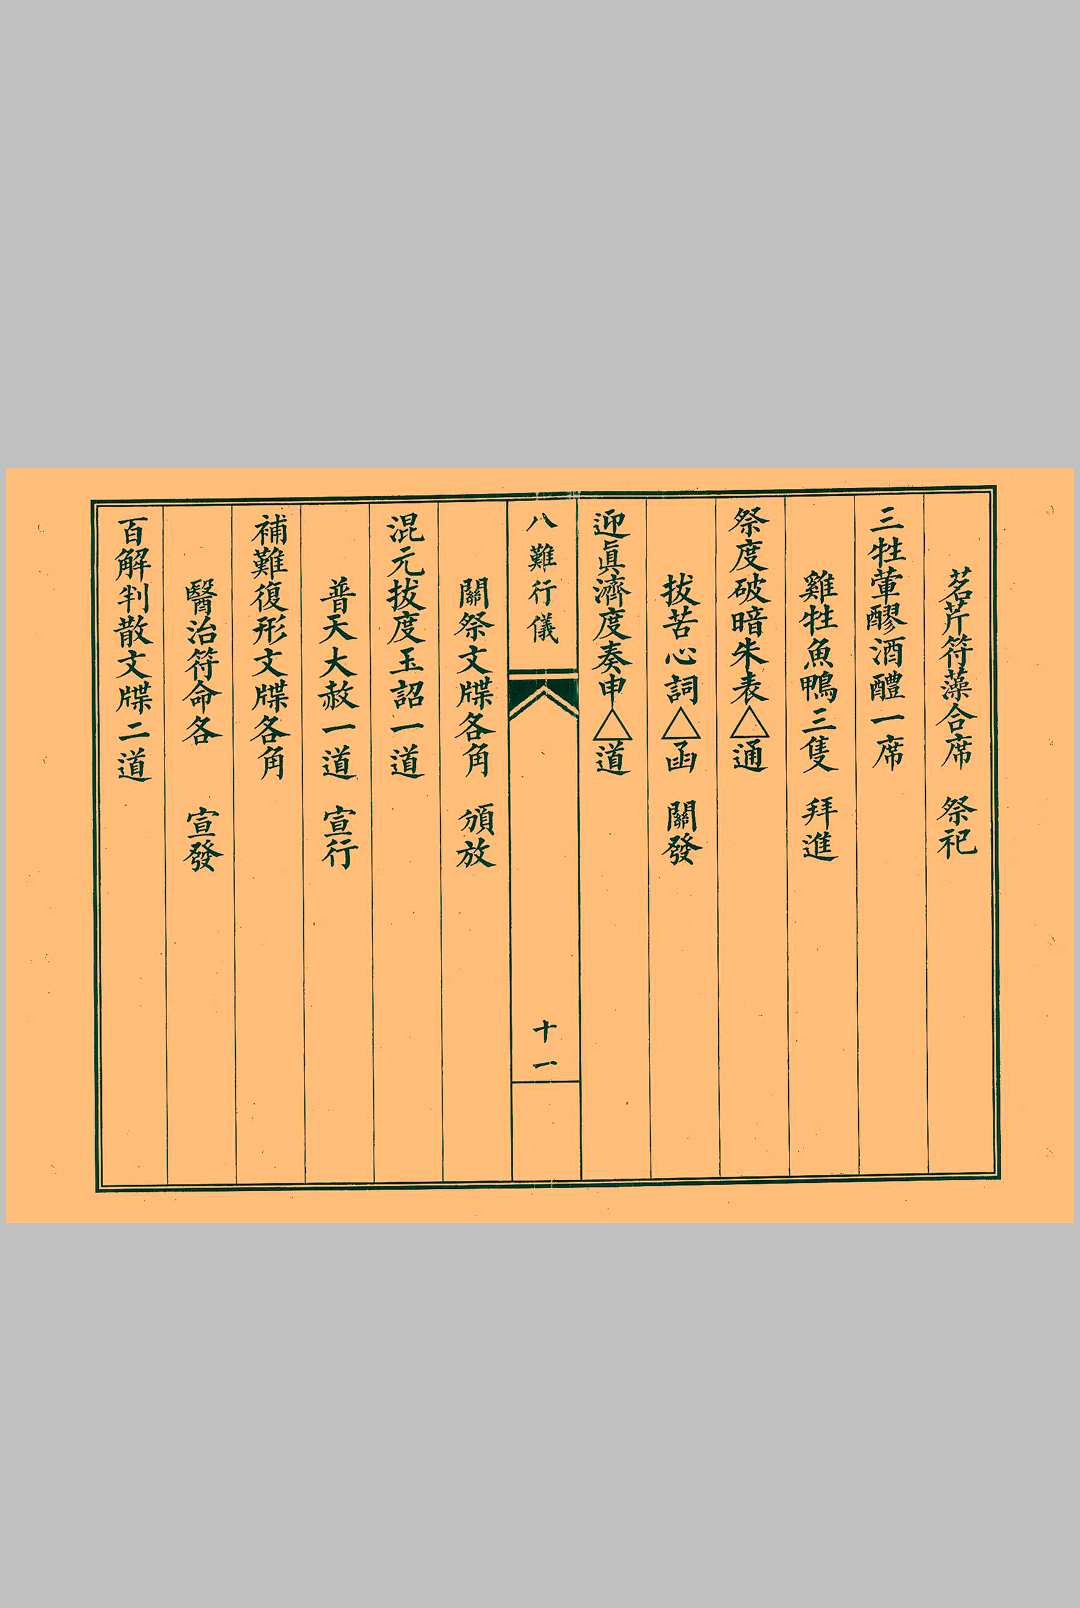 茗芹符藻合席　祭祀
三牲葷醪酒醴一席
雞牲魚鴨三隻　拜進
祭度破暗朱表△通
拔苦心詞△函　關發
迎眞濟度奏申△道
八難行儀
十一
關祭文牒各角　頒放
混元拔度玉詔一道
普天大赦一道　宣行
補難復形文牒各角
醫治符命各　宣發
百解判散文牒二道